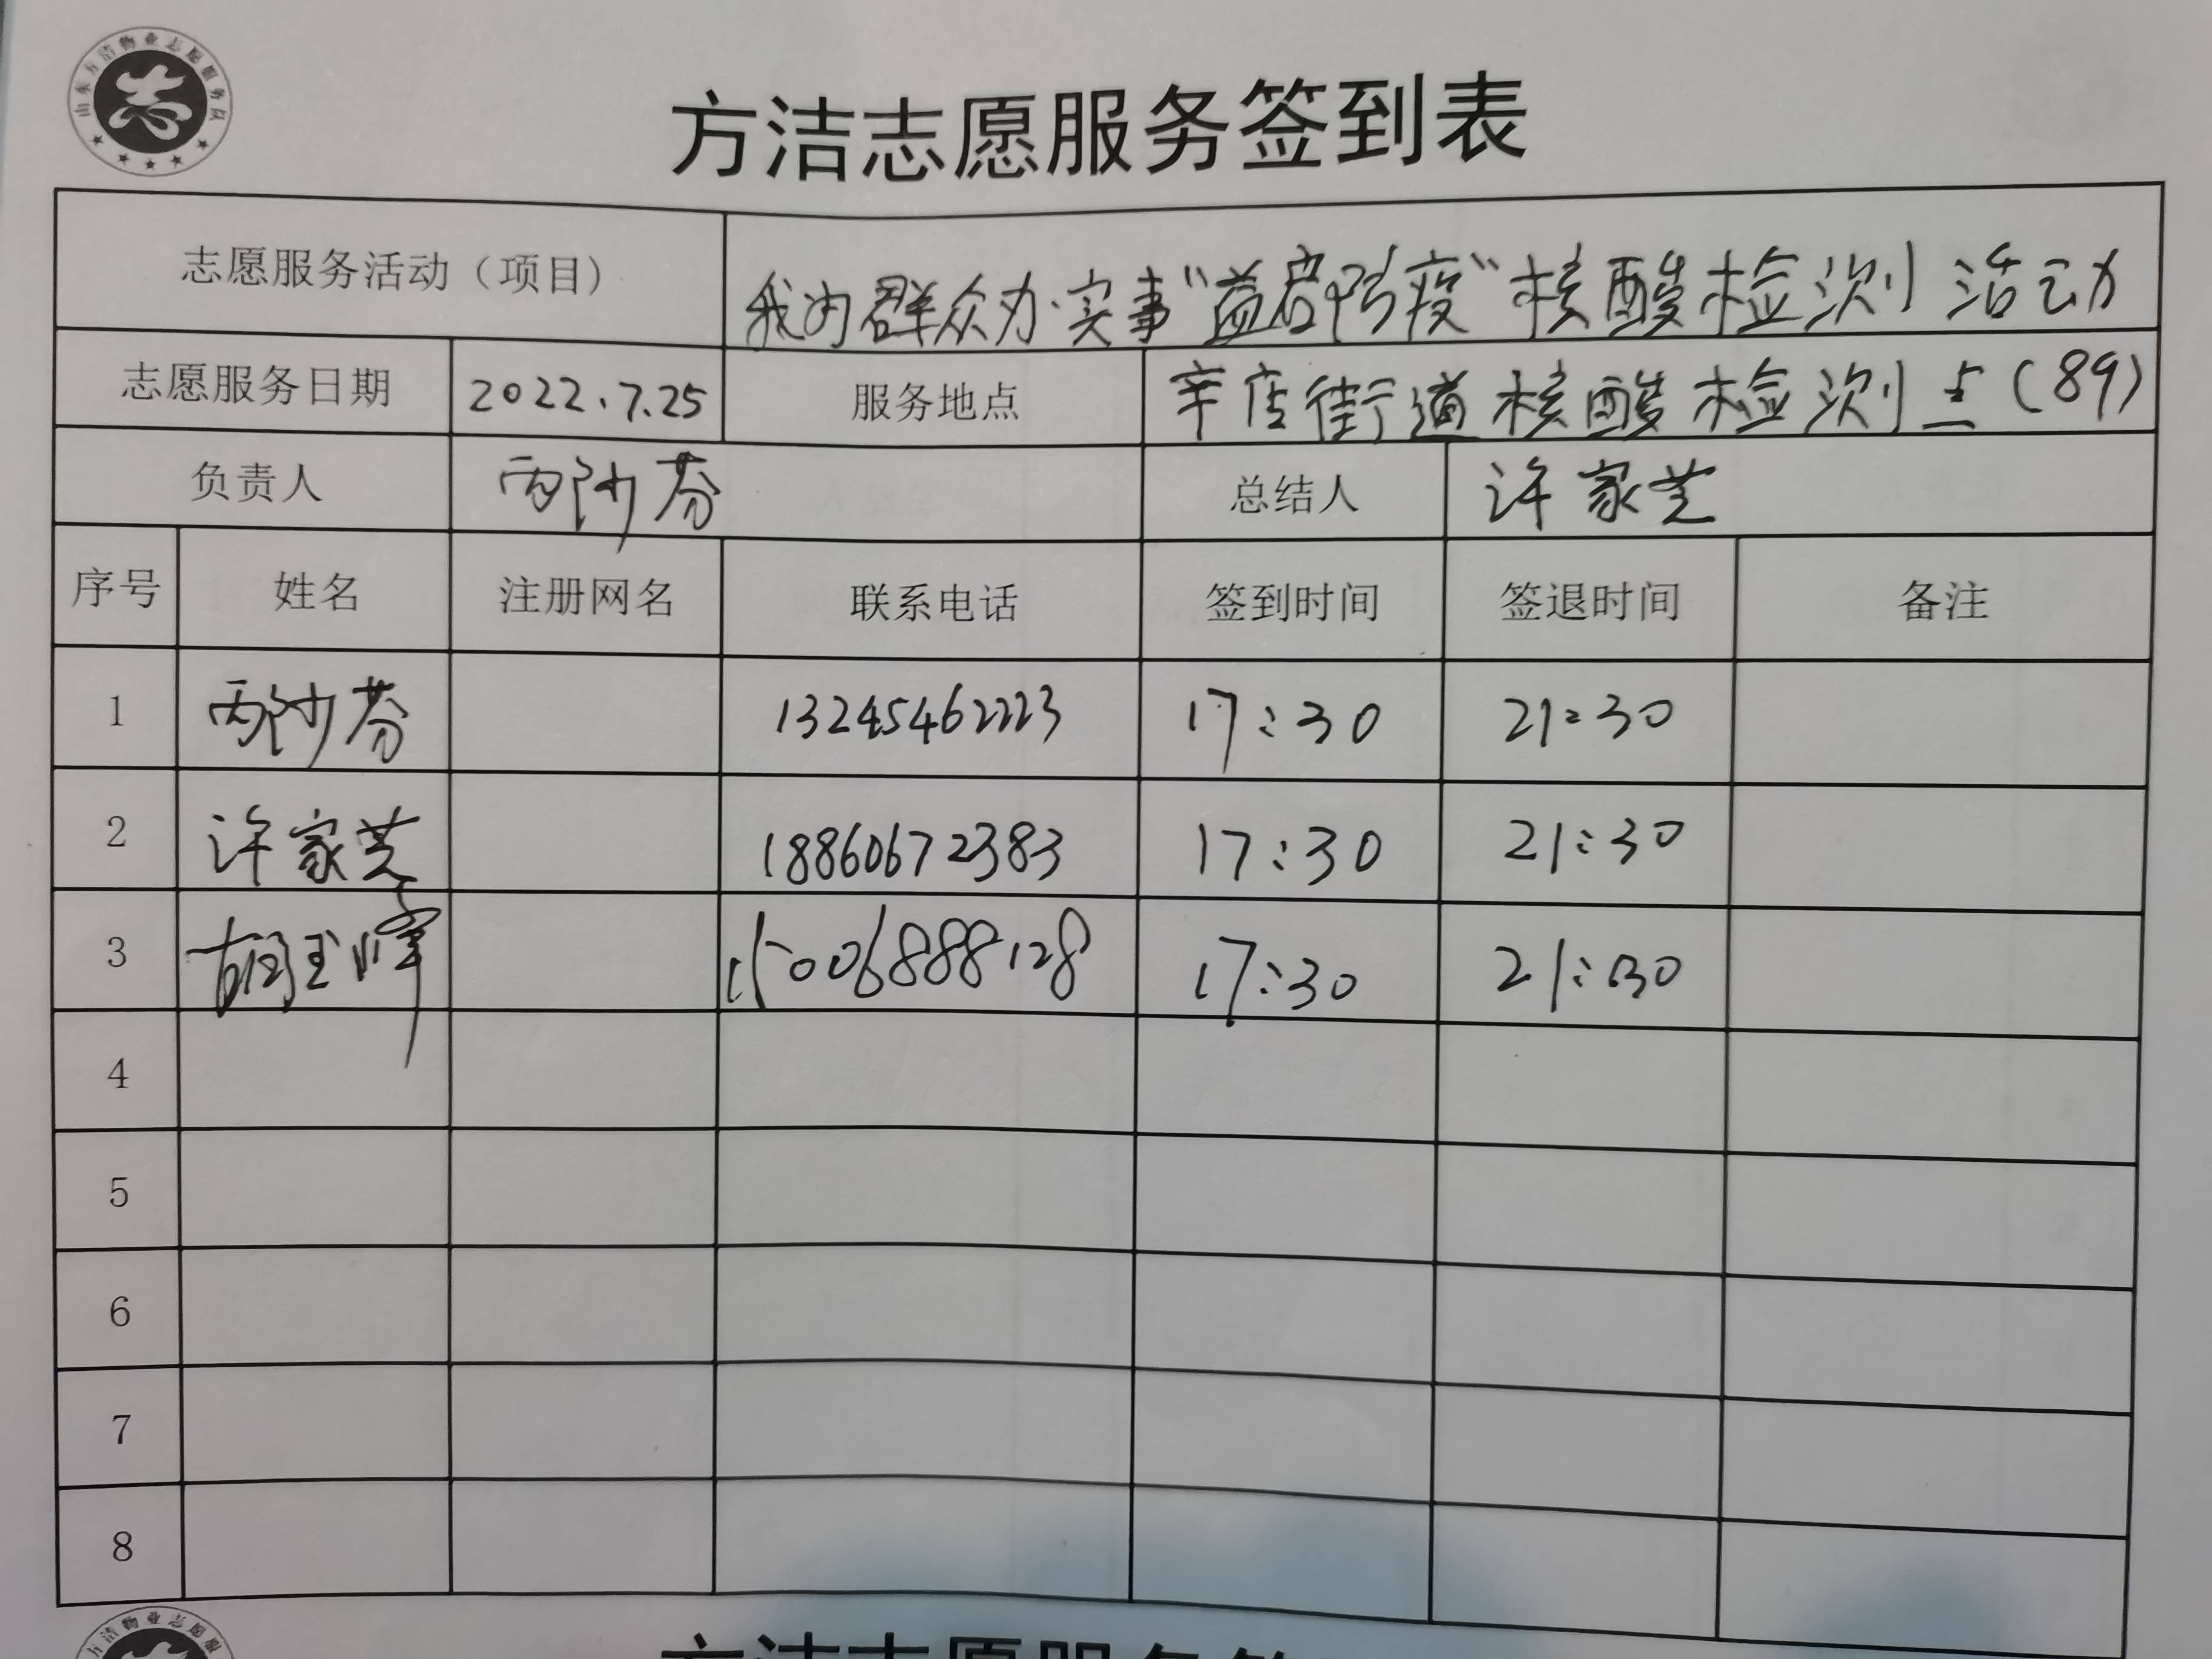 山东方洁物业志愿服务队
方洁志愿服务签到表
志愿服务活动（项目） 我为群众办实事"益启防疫"核酸检测活动
志愿服务日期 2022.7.25 服务地点 辛店街道核酸检测点(89)
负责人 丙沙芬 总结人 许家芝
序号 姓名 注册网名 联系电话 签到时间 签退时间 备注
1 丙沙芬 13245462223 17:30 21:30
2 许家芝 18860672383 17:30 21:30
3 胡玉辉 15006888128 17:30 21:30
4
5
6
7
8
方洁物业志愿服
方洁志愿服务签